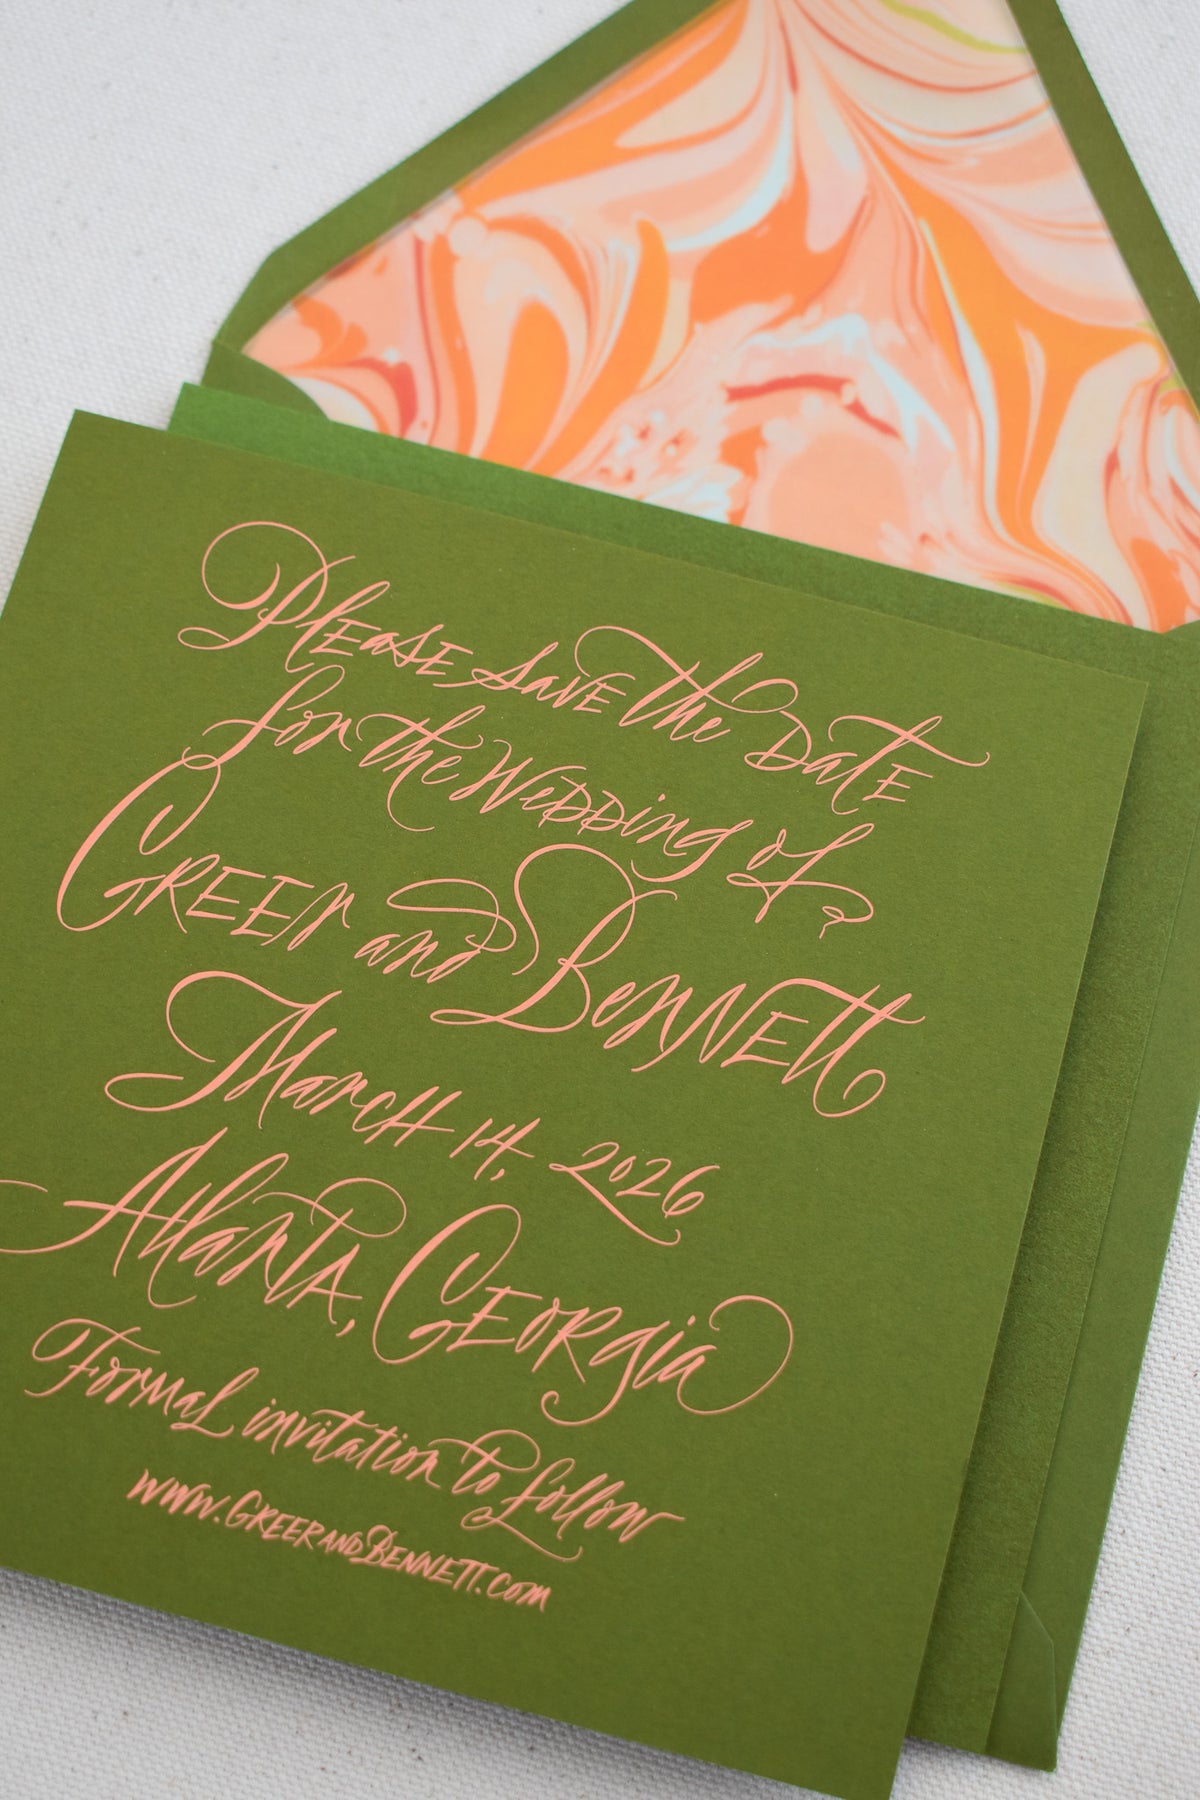 Please save the Date
for the Wedding of
Greer and Bennett
March 14, 2026
Atlanta, Georgia
Formal invitation to follow
www.GreerandBennett.com